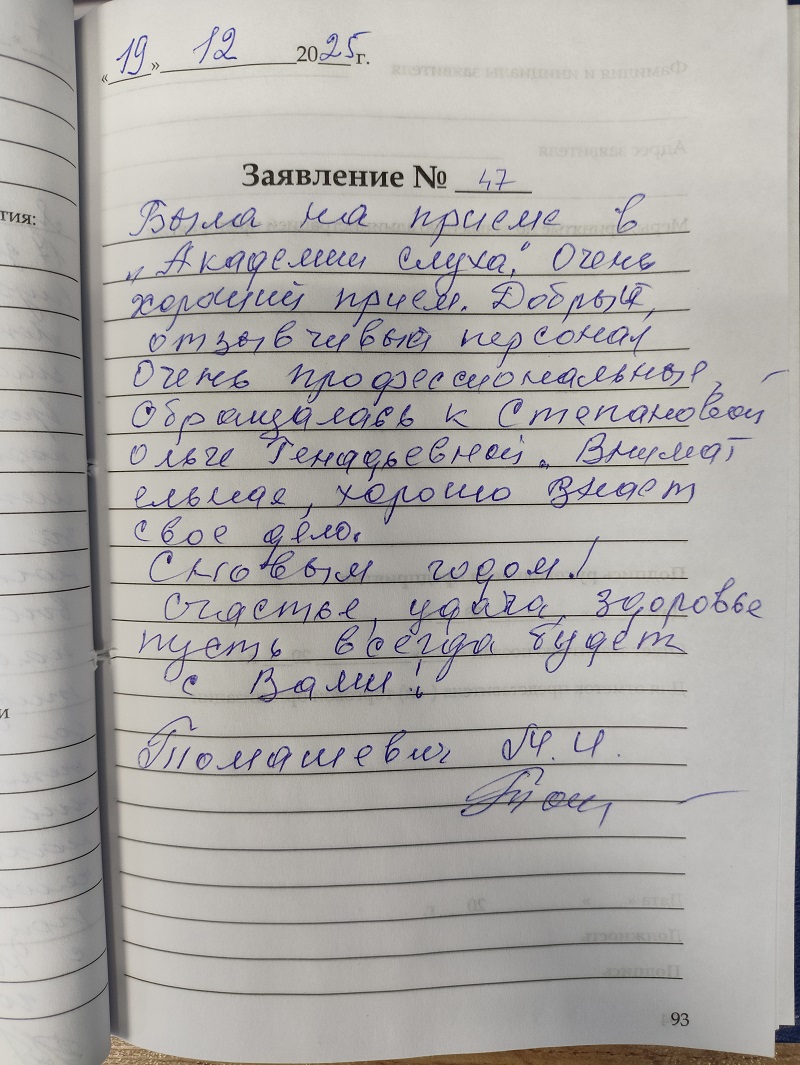 «19» 12 2025 г.
Заявление № 47
тия:
Была на приеме в
„Академии слуха." Очень
хороший прием. Добрый,
отзывчивый персонал
Очень профессиональные,
Обращалась к Степановой
Ольге Генадьевной. Внимат
ельная, хорошо знает
свое дело.
С новым годом!
Счастье, удача, здоровье
пусть всегда будет
с Вами!
и
Томашевич М.И.
93